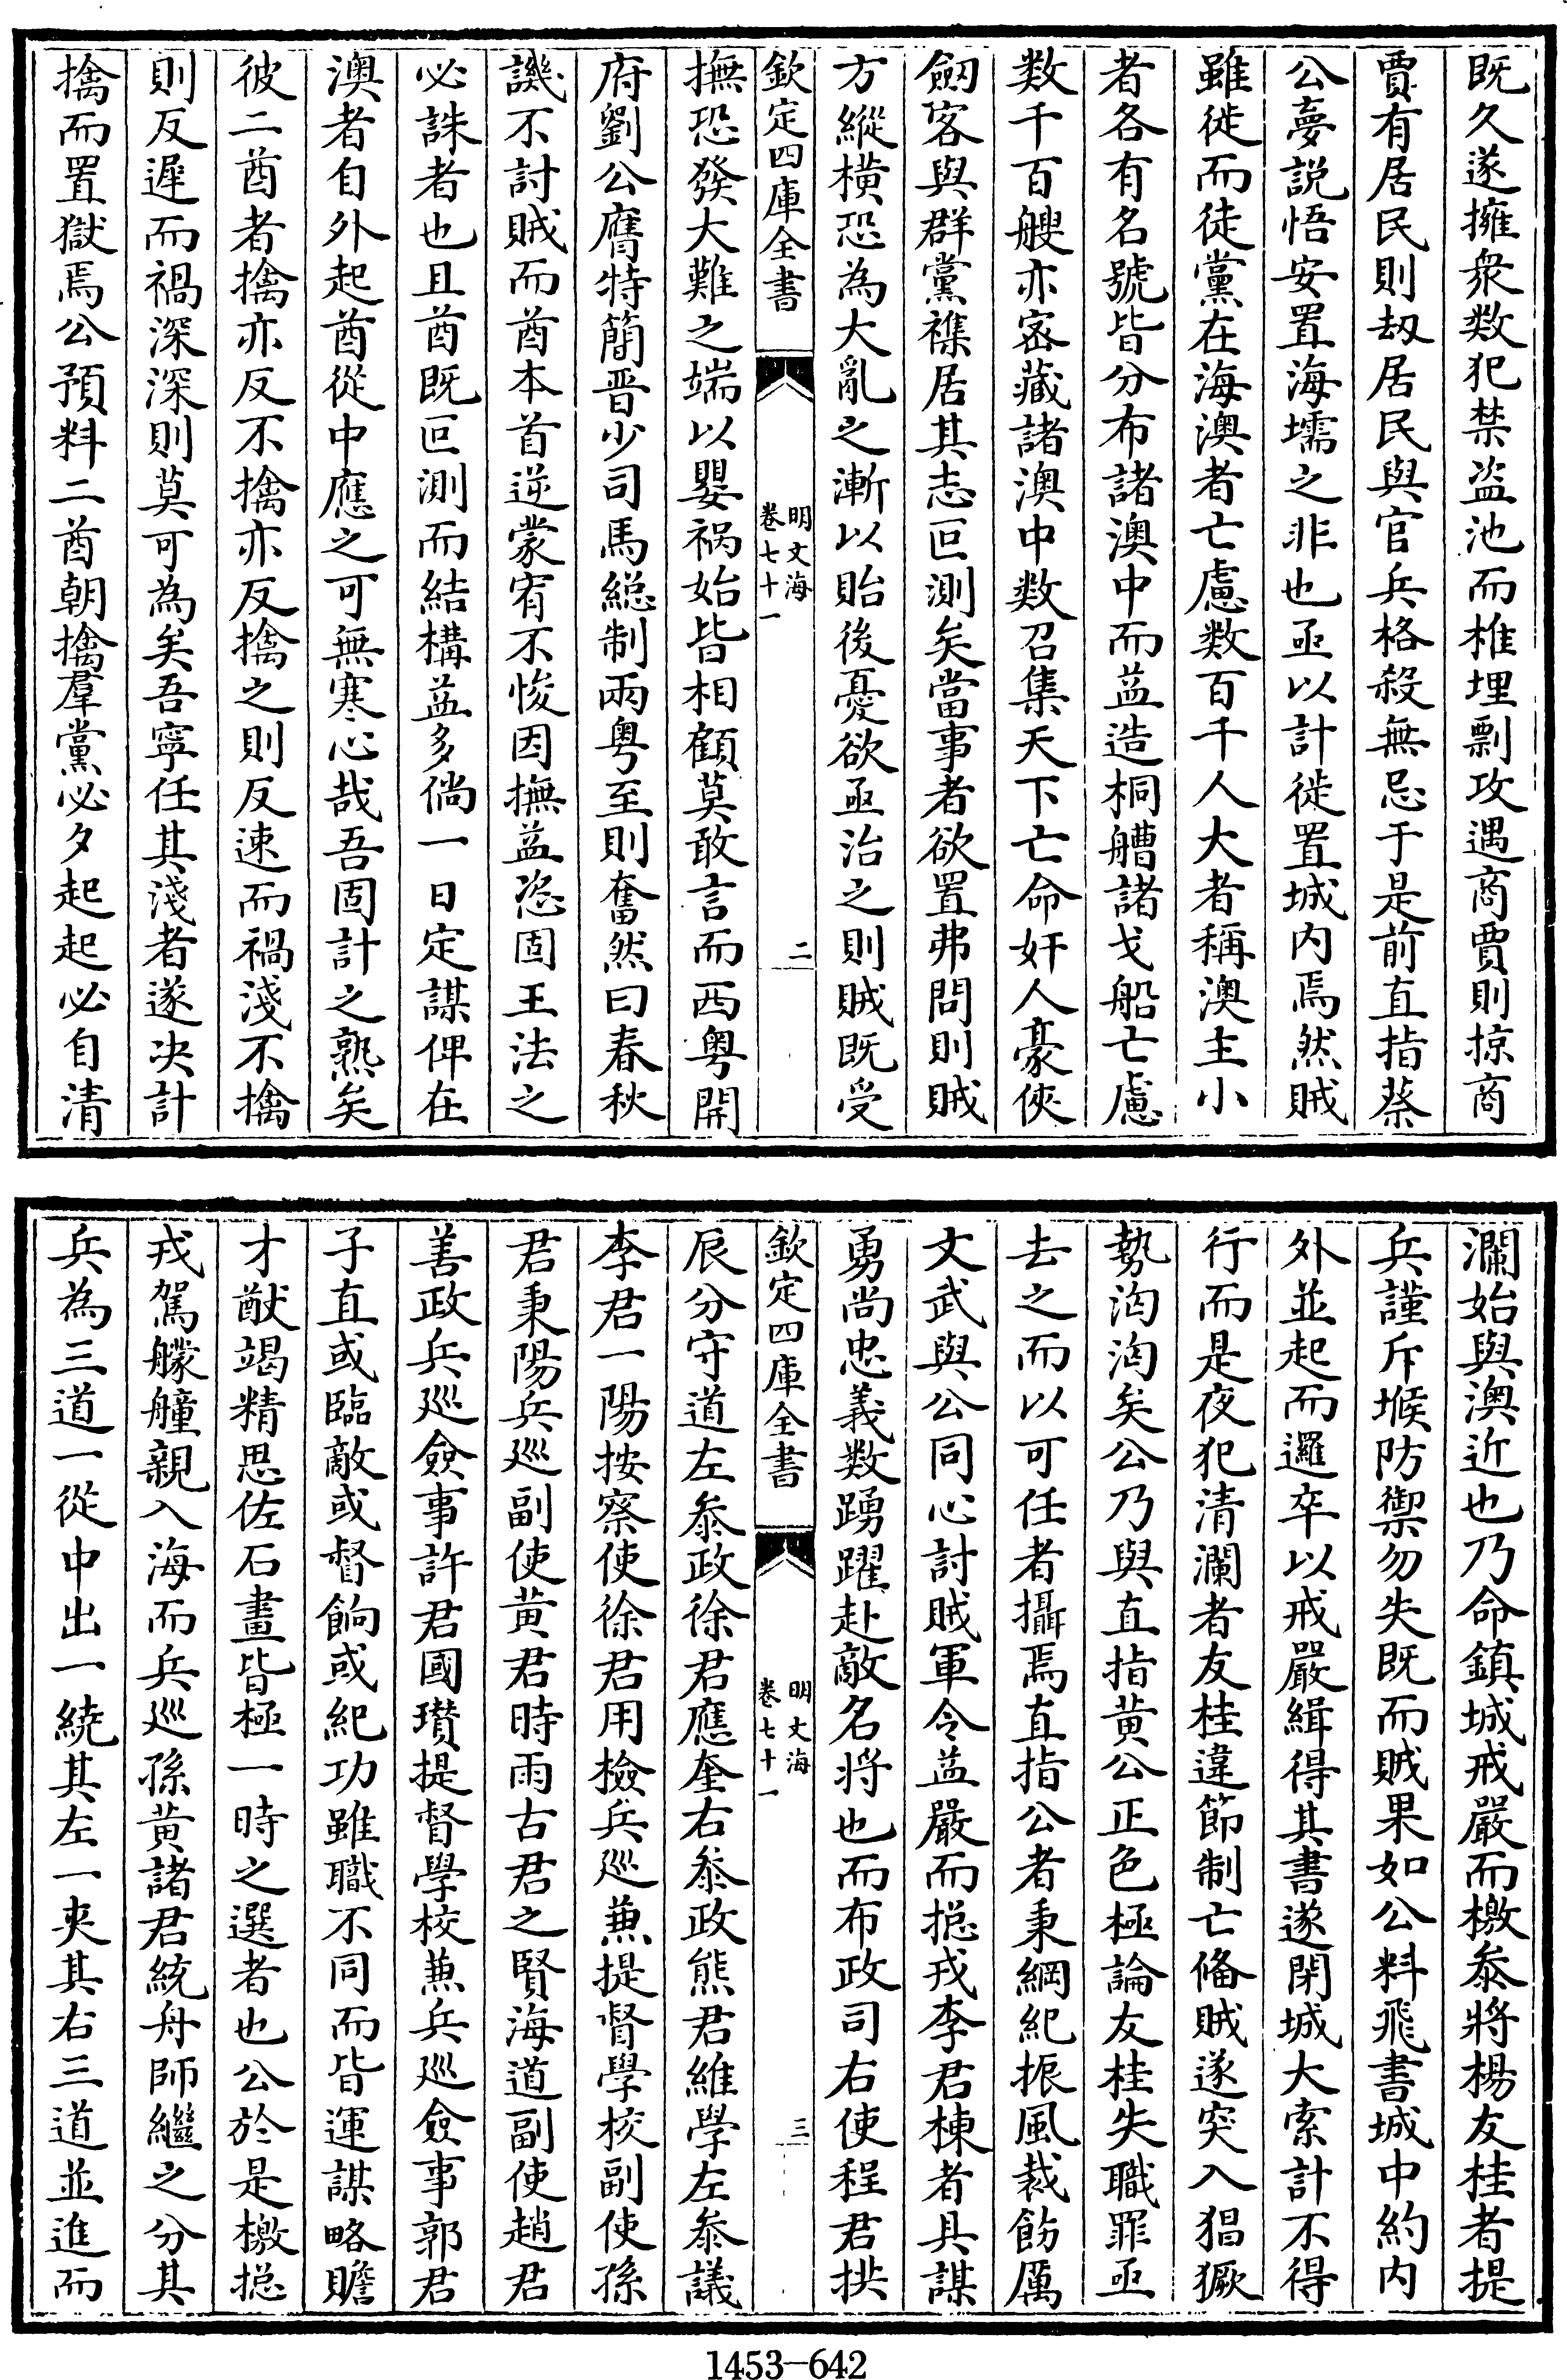 既久遂擁衆数犯禁盗池而椎埋剽攻遇商賈則掠商
賈有居民則刼居民與官兵格殺無忌于是前直指蔡
公夢説悟安置海壖之非也亟以計徙置城内焉然賊
雖徙而徒黨在海澳者亡慮数百千人大者稱澳主小
者各有名號皆分布諸澳中而益造桐艚諸戈船亡慮
数千百艘亦宻藏諸澳中数召集天下亡命奸人豪俠
劒客與群黨襍居其志叵測矣當事者欲置弗問則賊
方縱横恐為大亂之漸以貽後憂欲亟治之則賊既受
欽定四庫全書
明文海
卷七十一
二
撫恐發大難之端以嬰禍始皆相顧莫敢言而西粤開
府劉公膺特簡晋少司馬縂制兩粤至則奮然曰春秋
譏不討賊而酋本首逆蒙宥不悛因撫益恣固王法之
必誅者也且酋既叵測而結構益多倘一日定謀俾在
澳者自外起酋從中應之可無寒心哉吾固計之熟矣
彼二酋者擒亦反不擒亦反擒之則反速而禍淺不擒
則反遲而禍深深則莫可為矣吾寧任其淺者遂决計
擒而置獄焉公預料二酋朝擒羣黨必夕起起必自清
瀾始與澳近也乃命鎮城戒嚴而檄叅將楊友桂者提
兵謹斥堠防禦勿失既而賊果如公料飛書城中約内
外並起而邏卒以戒嚴緝得其書遂閉城大索計不得
行而是夜犯清瀾者友桂違節制亡俻賊遂突入猖獗
勢洶洶矣公乃與直指黄公正色極論友桂失職罪亟
去之而以可任者攝焉直指公者秉綱紀振風裁飭厲
文武與公同心討賊軍令益嚴而揔戎李君棟者具謀
勇尚忠義数踴躍赴敵名將也而布政司右使程君拱
欽定四庫全書
明文海
卷七十一
三
辰分守道左叅政徐君應奎右叅政熊君維學左叅議
李君一陽按察使徐君用檢兵廵兼提督學校副使孫
君秉陽兵廵副使黄君時雨古君之賢海道副使趙君
善政兵廵僉事許君國瓚提督學校兼兵廵僉事郭君
子直或臨敵或督餉或紀功雖職不同而皆運謀略贍
才猷竭精思佐石畫皆極一時之選者也公於是檄揔
戎駕艨艟親入海而兵廵孫黄諸君統舟師繼之分其
兵為三道一從中出一繞其左一夾其右三道並進而
1453—642